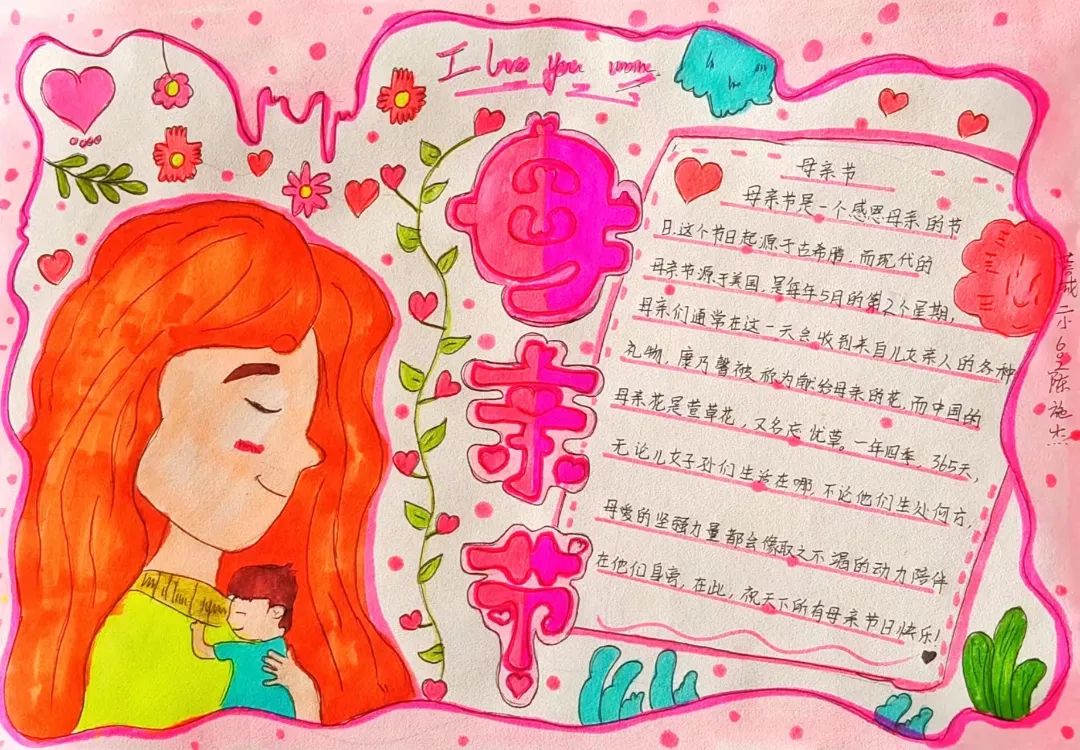 I love you mom
母亲节
母亲节
母亲节是一个感恩母亲的节
日.这个节日起源于古希腊.而现代的
母亲节源于美国.是每年5月的第2个星期,
母亲们通常在这一天会收到来自儿女亲人的各种
礼物.康乃馨被称为献给母亲的花.而中国的
母亲花是萱草花,又名忘忧草。一年四季,365天,
无论儿女子孙们生活在哪,不论他们生处何方,
母爱的坚强力量都会像取之不竭的动力陪伴
在他们身旁,在此,祝天下所有母亲节日快乐!
二小6.2陈施杰